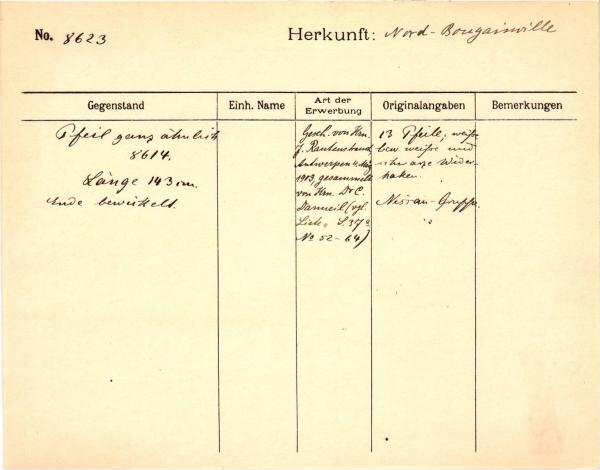 No. 8623
Herkunft: Nord-Bougainville
Gegenstand
Einh. Name
Art der Erwerbung
Originalangaben
Bemerkungen
Pfeil ganz ähnlich
8614.
Länge 143 cm.
Ende bewickelt.
Gesch. von Hrn.
J. Rautenstrauch
Antwerpen
1903, gesammelt
von Hrn. Dr C.
Danneil (vgl.
Liste
No 52-64)
13 Pfeile,
weiße und
Wider-
haken.
Nissan-Gruppe.